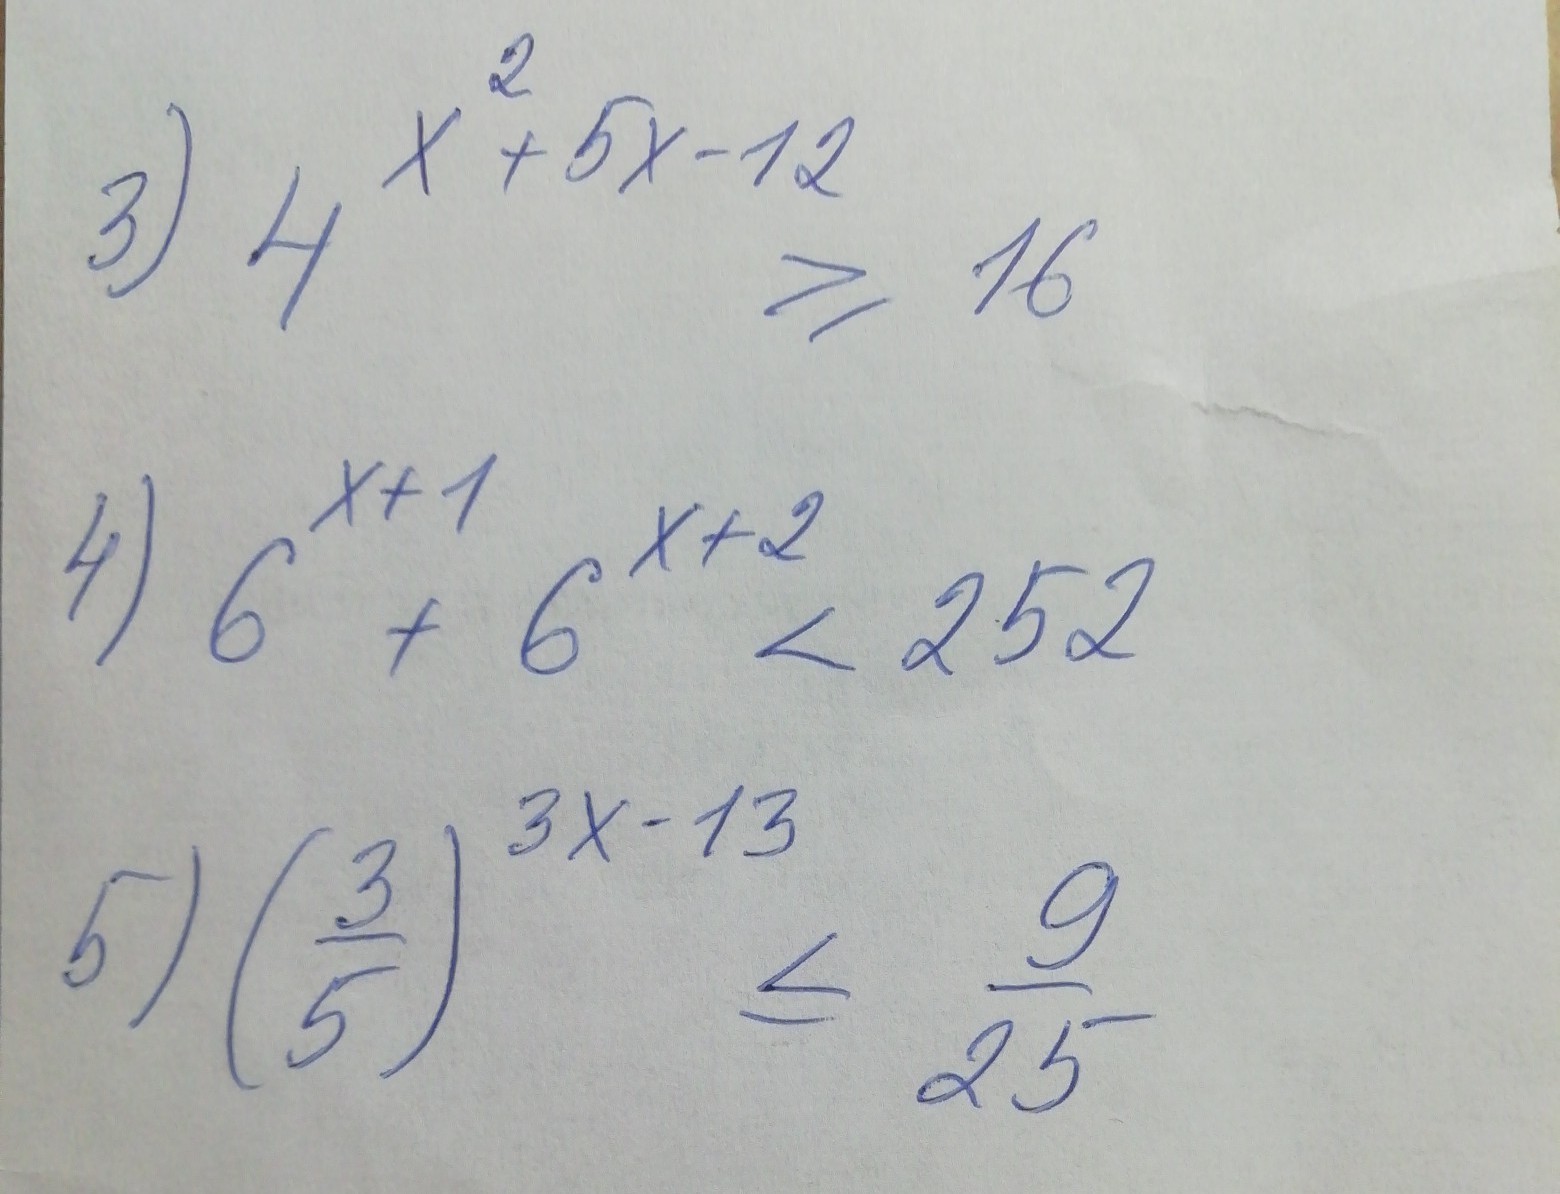 3) 4^{x^2+5x-12} ≥ 16
4) 6^{x+1} + 6^{x+2} < 252
5) (3/5)^{3x-13} ≤ 9/25